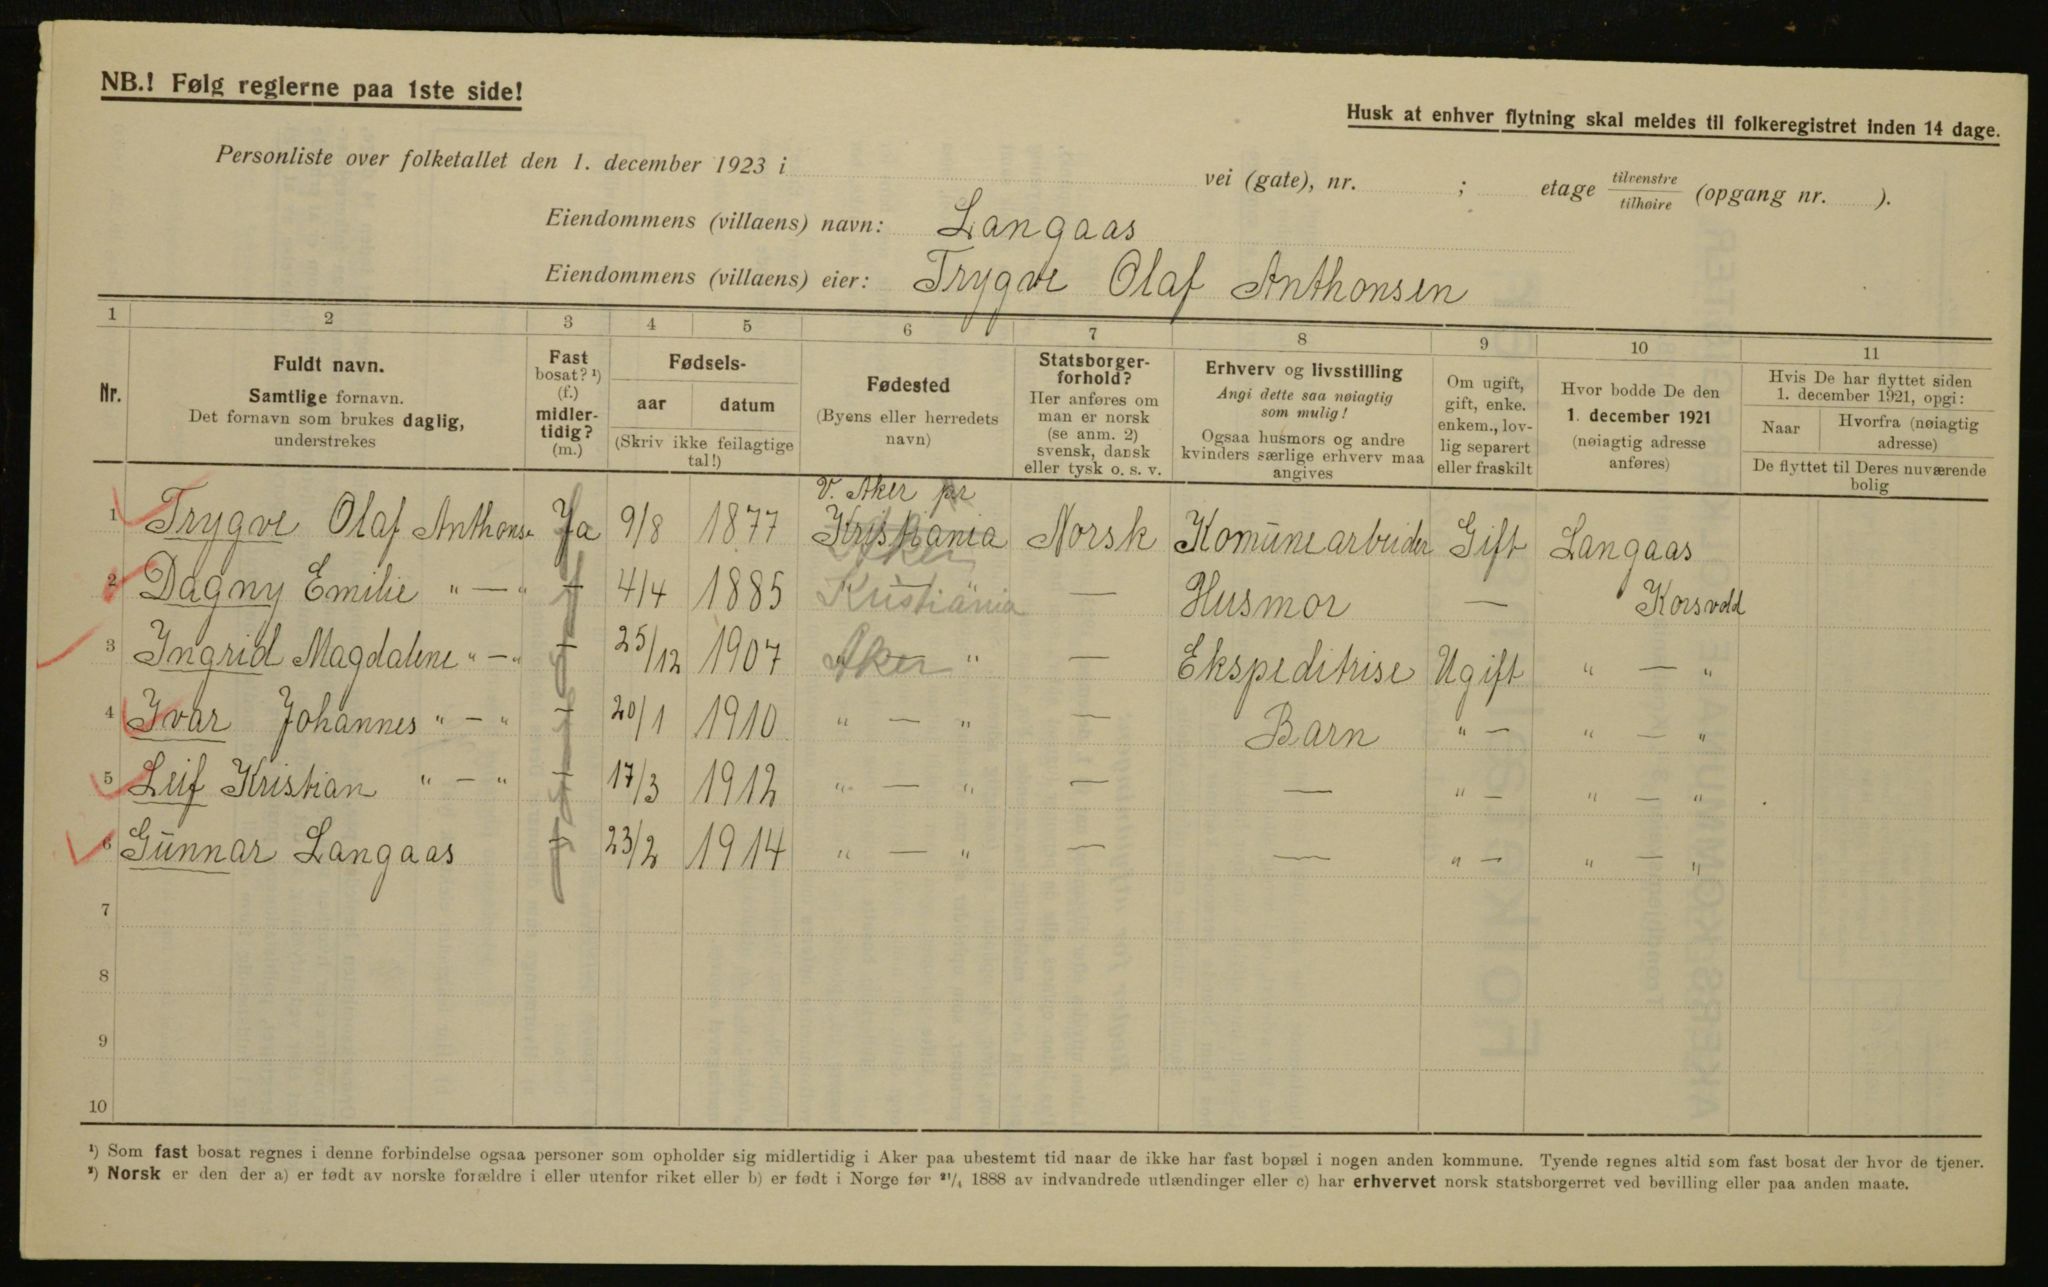 NB.! Følg reglerne paa 1ste side!
Husk at enhver flytning skal meldes til folkeregistret inden 14 dage.
Personliste over folketallet den 1. december 1923 i vei (gate), nr. ; etage tilvenstre tilhøire (opgang nr. ).
Eiendommens (villaens) navn: Langaas
Eiendommens (villaens) eier: Trygve Olaf Anthonsen
1 2 3 4 5 6 7 8 9 10 11
Nr.
Fuldt navn.
Samtlige fornavn.
Det fornavn som brukes daglig,
understrekes
Fast
bosat? ¹)
(f.)
midler-
tidig?
(m.)
Fødsels-
aar datum
(Skriv ikke feilagtige
tal!)
Fødested
(Byens eller herredets
navn)
Statsborger-
forhold?
Her anføres om
man er norsk
(se anm. 2)
svensk, dansk
eller tysk o. s. v.
Erhverv og livsstilling
Angi dette saa nøiagtig
som mulig!
Ogsaa husmors og andre
kvinders særlige erhverv maa
angives
Om ugift,
gift, enke.
enkem., lov-
lig separert
eller fraskilt
Hvor bodde De den
1. december 1921
(nøiagtig adresse
anføres)
Hvis De har flyttet siden
1. december 1921, opgi:
Naar
Hvorfra (nøiagtig
adresse)
De flyttet til Deres nuværende
bolig
V. Aker pr
1 Trygve Olaf Anthonse Ja 9/8 1877 Kristiania Norsk Komünearbeider Gift Langaas
Aker
2 Dagny Emilie " — " — 4/4 1885 Kristiania — Husmor — Korsvold
3 Ingrid Magdalene " — " — 25/12 1907 Aker — Ekspeditrise Ugift " — "
4 Ivar Johannes " — " — 20/1 1910 " — " — Barn " — " — "
5 Leif Kristian " — " — 17/3 1912 " — " — — " — " — "
6 Günnar Langaas — 23/2 1914 " — " — — " — " — "
7
8
9
10
¹) Som fast bosat regnes i denne forbindelse ogsaa personer som opholder sig midlertidig i Aker paa ubestemt tid naar de ikke har fast bopæl i nogen anden kommune. Tyende regnes altid som fast bosat der hvor de tjener.
²) Norsk er den der a) er født av norske forældre i eller utenfor riket eller b) er født i Norge før ²¹/₄ 1888 av indvandrede utlændinger eller c) har erhvervet norsk statsborgerret ved bevilling eller paa anden maate.